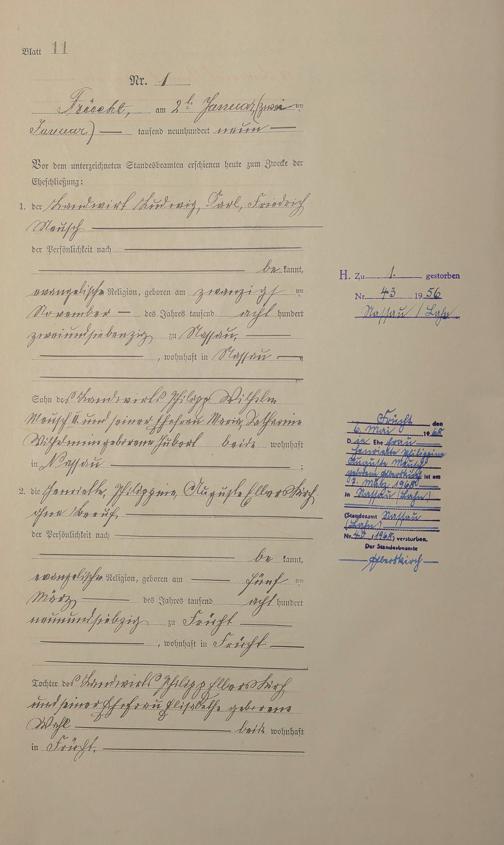 Blatt 11
Nr. 1
Früecht, am 2t Januar (zwei ten
Januar) — tausend neunhundert neun —
Vor dem unterzeichneten Standesbeamten erschienen heute zum Zwecke der
Eheschließung:
1. der Landwirt Ludwig, Carl, Friedrich
Meusch
der Persönlichkeit nach
be kannt,
evangelische Religion, geboren am zwanzigst en
November — des Jahres tausend acht hundert
zweiundsiebenzig zu Nassau,
, wohnhaft in Nassau
Sohn des Landwirts Philipp Wilhelm
Meusch II. und seiner Ehefrau Maria Catharine
Wilhelmine geborene Hubert beide wohnhaft
in Nassau ;
2. die Henriette, Philippine, Auguste Elberskirch
ohne Beruf,
der Persönlichkeit nach
be kannt,
evangelische Religion, geboren am fünf ten
März des Jahres tausend acht hundert
neunundsiebzig zu Frücht
, wohnhaft in Frücht
Tochter des Landwirts Philipp Elberskirch
und seiner Ehefrau Elisabethe geborene
Wahl beide wohnhaft
in Frücht.
H. Zu 1. gestorben
Nr. 43 1956
Nassau / Lahn
Frücht den
6. Mai 1968
D. ie Ehefrau
Henriette Philippine
Auguste Meusch
geborene Elberskirch ist am
März 1968
in Nassau (Lahn)
(Standesamt Nassau
(Lahn)
Nr. 1968) verstorben.
Der Standesbeamte
Elberskirch